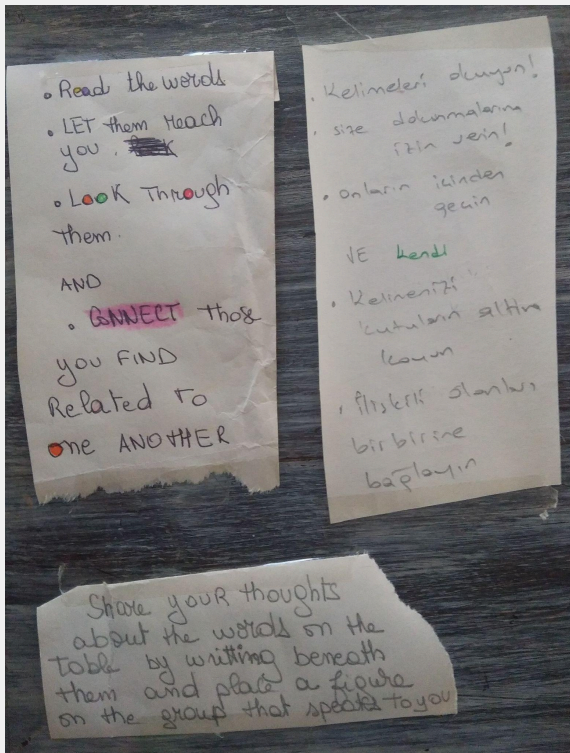 • Read the words
• LET them reach
you.
• LOOK Through
them.
AND
• CONNECT those
you FIND
Related to
one ANOTHER
• Kelimeleri okuyun!
• size dokunmalarına
izin verin!
• onların içinden
geçin
VE kendi
• Kelimenizi
kutuların altına
koyun
• İlişkili olanları
birbirine
bağlayın
Share youR thoughts
about the words on the
table by writting beneath
them and place a figure
on the group that speaks to you